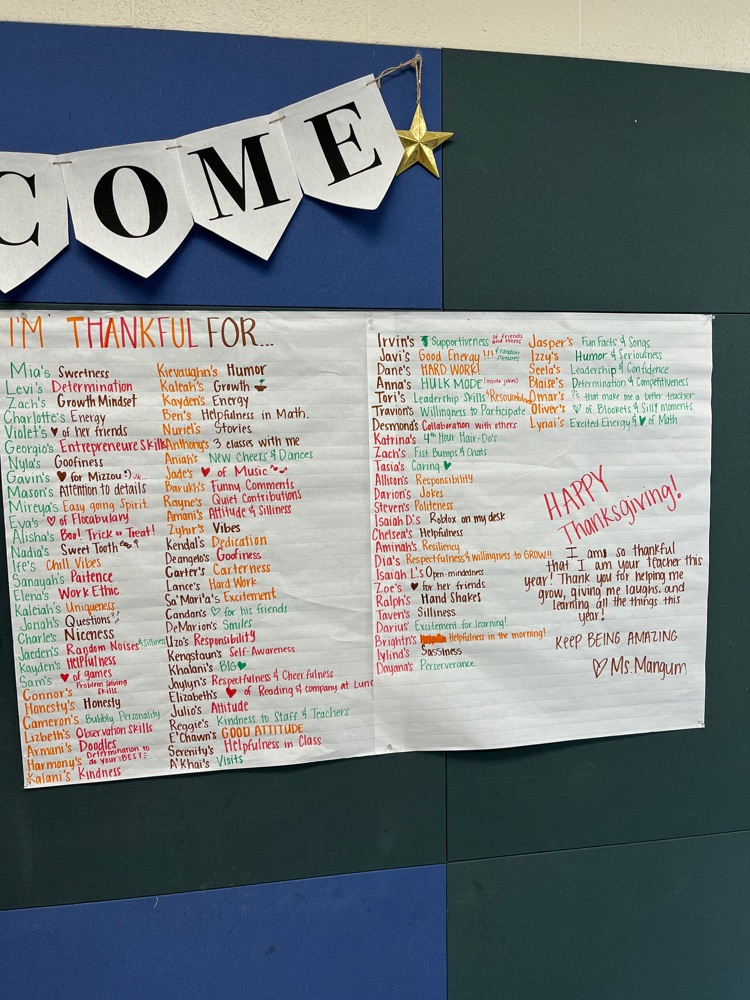 COME
I'M THANKFUL FOR...
Mia's Sweetness
Levi's Determination
Zach's Growth Mindset
Charlotte's Energy
Violet's ♥ of her friends
Georgio's Entrepreneure Skills
Nyla's Goofiness
Gavin's ♥ for Mizzou :)
Mason's Attention to details
Mireya's Easy going Spirit
Eva's ♡ of Flocabulary
Alisha's Boo! Trick or Treat!
Nadia's Sweet Tooth
Ife's Chill Vibes
Sanayah's Paitence
Elena's Work Ethic
Kaleiah's Uniqueness
Jonah's Questions?
Charle's Niceness
Jaeden's Random Noises & Silliness
Kayden's Helpfulness
Sam's ♥ of games
Connor's Problem Solving Skills
Honesty's Honesty
Cameron's Bubbly Personality
Lizbeth's Observation Skills
Armani's Doodles
Harmony's Determination to do your BEST!
Kalani's Kindness
Kievaughn's Humor
Kaleah's Growth
Kayden's Energy
Ben's Helpfulness in Math.
Nuriel's Stories
Anthony's 3 classes with me
Aniah's New Cheers & Dances
Jade's ♥ of Music
Barukh's Funny Comments
Rayne's Quiet Contributions
Amani's Attitude & Silliness
Zyhir's Vibes
Kendal's Dedication
Deangelo's Goofiness
Carter's Carterness
Lance's Hard Work
Sa'Mari'a's Excitement
Gandon's ♡ for his friends
DeMarion's Smiles
Izo's Responsibility
Kengstaun's Self-Awareness
Khalani's BIG ♥
Jaylyn's Respectfulness & Cheerfulness
Elizabeth's ♥ of Reading & company at Lunc
Julio's Attitude
Reggie's Kindness to Staff & Teachers
E'Chawn's GOOD ATTITUDE
Serenity's Helpfulness in Class
A'Khai's Visits
Irvin's Supportiveness of friends and others
Javi's Good Energy!!! & random Pictures
Dane's HARD WORK!
Anna's HULK MODE (inside jokes)
Tori's Leadership Skills
Travion's Willingness to Participate
Desmond's Collaboration with others
Katrina's 4th Hour Hair-Do's
Zach's Fist Bumps & Chats
Tasia's Caring ♥
Allison's Responsibility
Darion's Jokes
Steven's Politeness
Isaiah D's Roblox on my desk
Chelsea's Helpfulness
Aminah's Resiliency
Dia's Respectfulness & willingness to GROW!!
Isaiah L's Open-mindedness
Zoe's ♥ for her friends
Ralph's Hand Shakes
Taven's Silliness
Darius' Excitement for learning!
Brightn's Helpfulness in the morning!
Iylind's Sassiness
Dayana's Perserverance
Jasper's Fun Facts & Songs
Izzy's Humor & Seriousness
Seela's Leadership & Confidence
Blaise's Determination & Competitiveness
Omar's ?s that make me a better teacher
Oliver's ♡ of Blookets & Silly Moments
Lynai's Excited Energy & ♥ of Math
HAPPY
Thanksgiving!
I am so thankful
that I am your teacher this
year! Thank you for helping me
grow, giving me laughs, and
learning all the things this
year!
KEEP BEING AMAZING
♡ Ms. Mangum